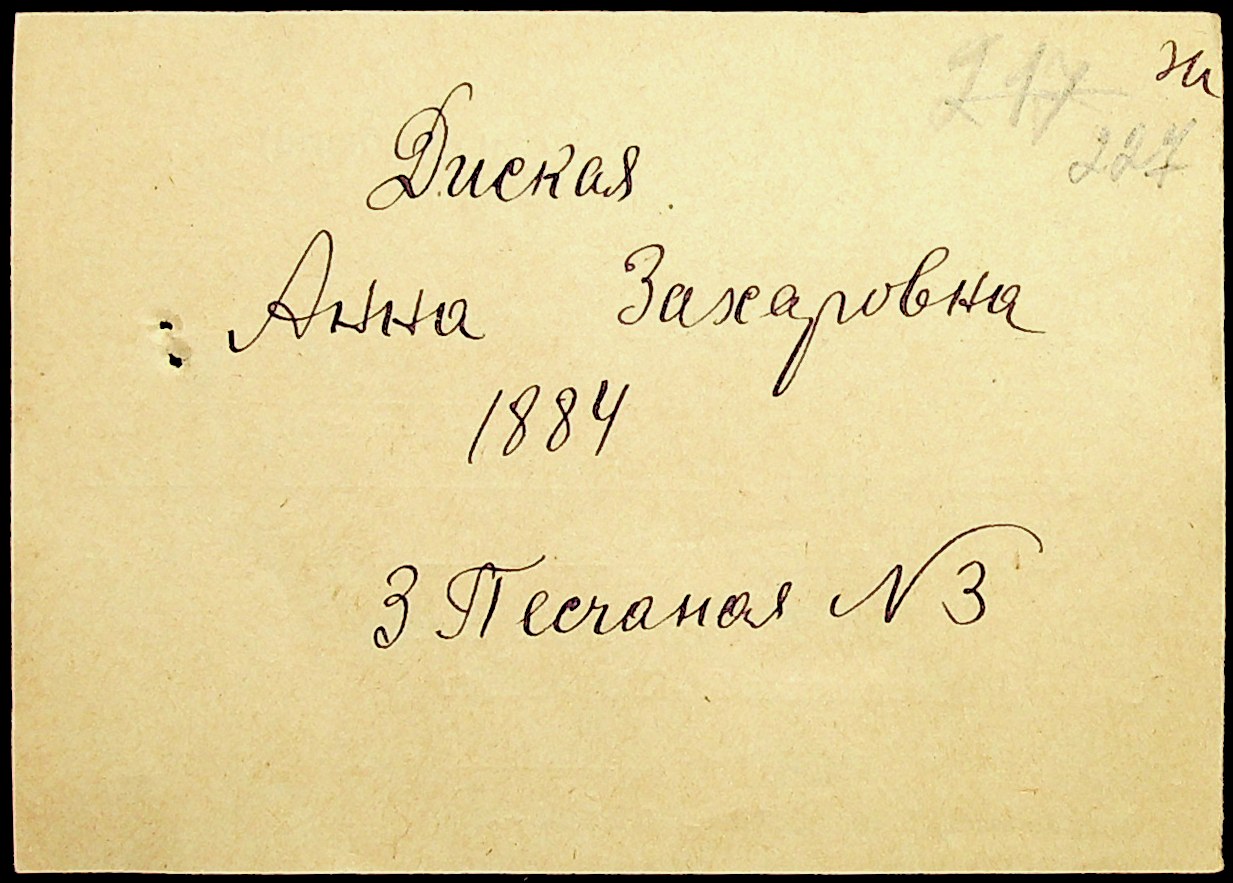 217
227
Диская
Анна Захаровна
1884
3 Песчаная N 3